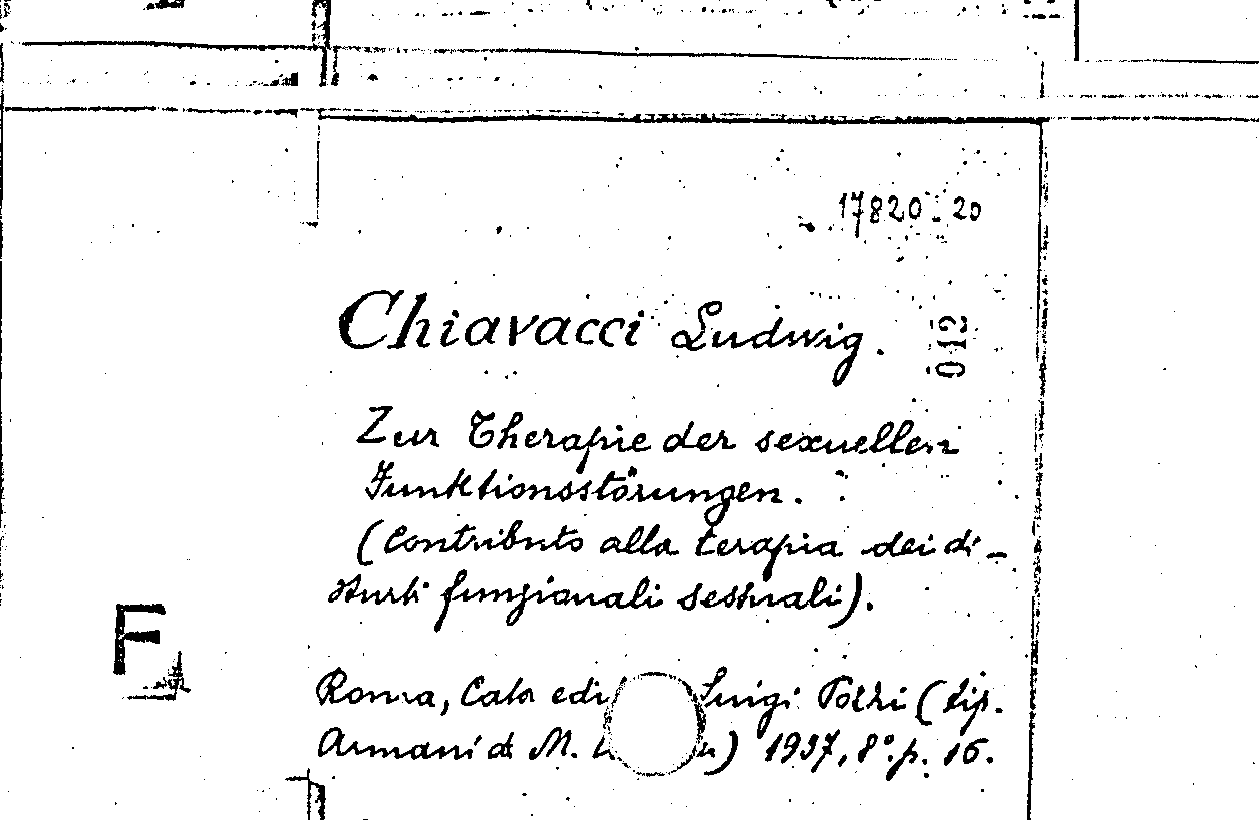 17820 - 20
Chiavacci Ludwig.
012
Zur Therapie der sexuellen
Funktionsstörungen.
(Contributo alla terapia dei di-
sturbi funzionali sessuali).
F
Roma, Casa edi Luigi Pozzi (tip.
Armani di M. 1937, 8°. p. 16.